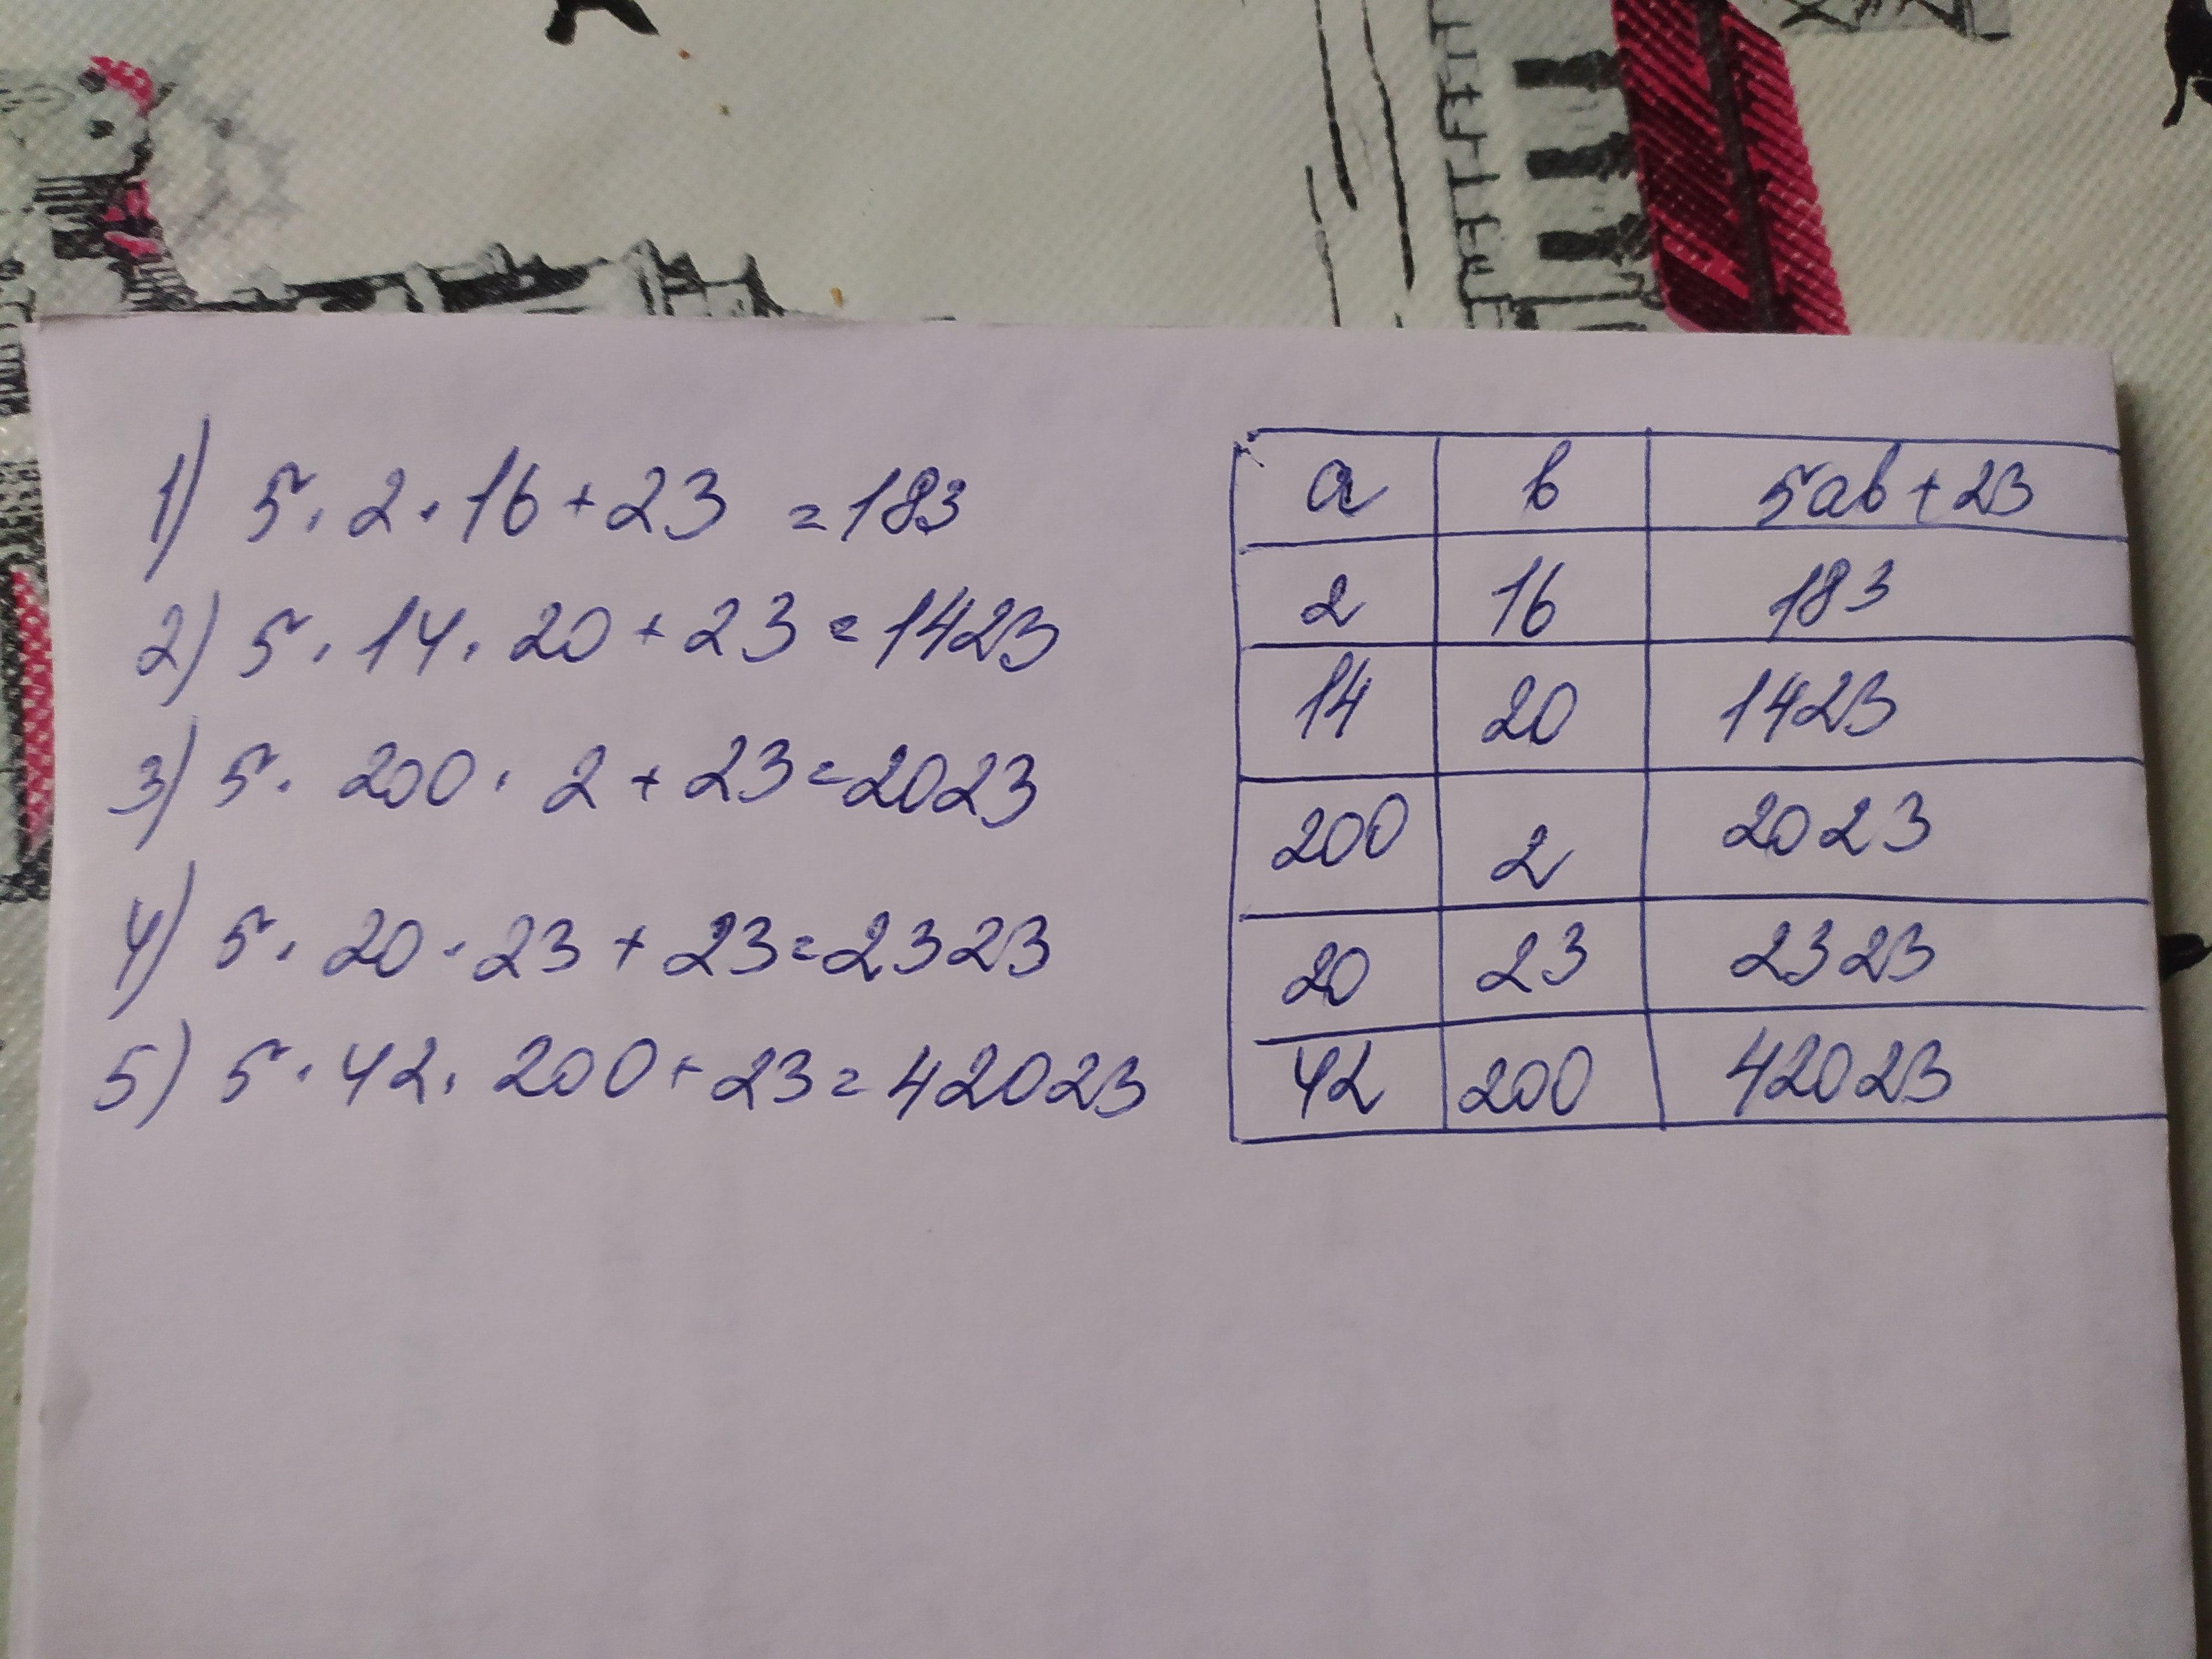 1) 5·2·16+23 =183
2) 5·14·20+23=1423
3) 5·200·2+23=2023
4) 5·20·23+23=2323
5) 5·42·200+23=42023
a b 5ab+23
2 16 183
14 20 1423
200 2 2023
20 23 2323
42 200 42023